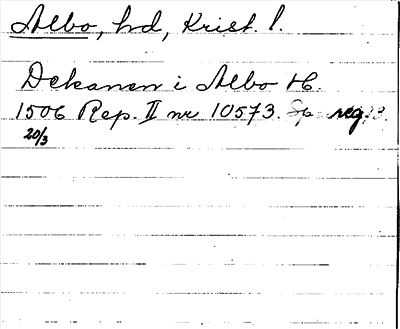 Albo, hd, Krist. l.
Dekanen i Albo H.
1506 Rep. II nr 10573. Sp reg.
20/3